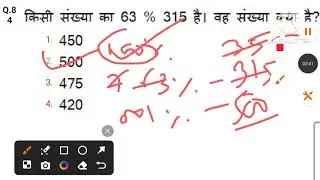 Q.8 किसी संख्या का 63 % 315 है। वह संख्या क्या है?
4
1. 450
2. 500
3. 475
4. 420
63 % - 315
100 % - 500
03:41